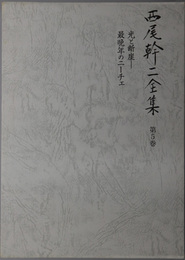 西尾幹二全集
第5巻
光と断崖―
最晩年のニーチェ